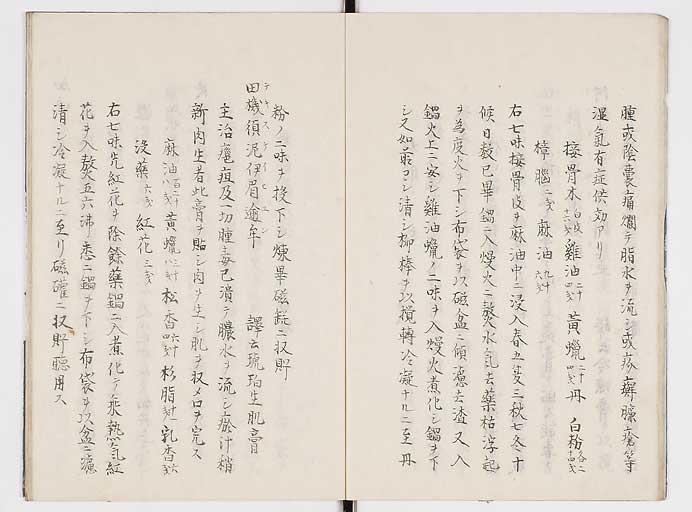 腫或陰囊痛爛テ脂水ヲ流シ或疥癬臁瘡等
濕氣有症倶効アリ
接骨木白皮十六戔雞油二十四戔黃蠟二十四戔丹 白粉各二十四戔
樟腦二戔 麻油九十六戔
右七味接骨皮ヲ麻油中ニ浸入春五夏三秋七冬十
候日数已畢鍋ニ入熳火ニ熬水氣去藥枯浮起
ヲ為度火ヲ下シ布袋ヲ以磁盆ニ傾濾去渣又入
鍋火上ニ安シ雞油蠟ノ二味ヲ入熳火煮化シ鍋ヲ下
シ又如前コシ清シ柳棒ヲ以攪轉冷凝ナルニ至丹
粉ノ二味ヲ投下シ煉畢磁罐ニ収貯
田機須泥伊眉逾牟 譯云琥珀生肌膏
主治瘡疽及一切腫毒已潰テ膿水ヲ流シ瘀汁稍
新肉生者此膏ヲ貼シ肉ヲ生シ肌ヲ収メ口ヲ完ス
麻油百二十八戔黃蠟八戔松香六十四戔杉脂乳香
沒藥六戔 紅花三戔
右七味先紅花ヲ除餘藥鍋ニ入煮化テ乘熱紅
花ヲ入熬五六沸悉ニ鍋ヲ下シ布袋ヲ以盆ニ濾
清シ冷凝ナルニ至リ磁罐ニ収貯聽用ス